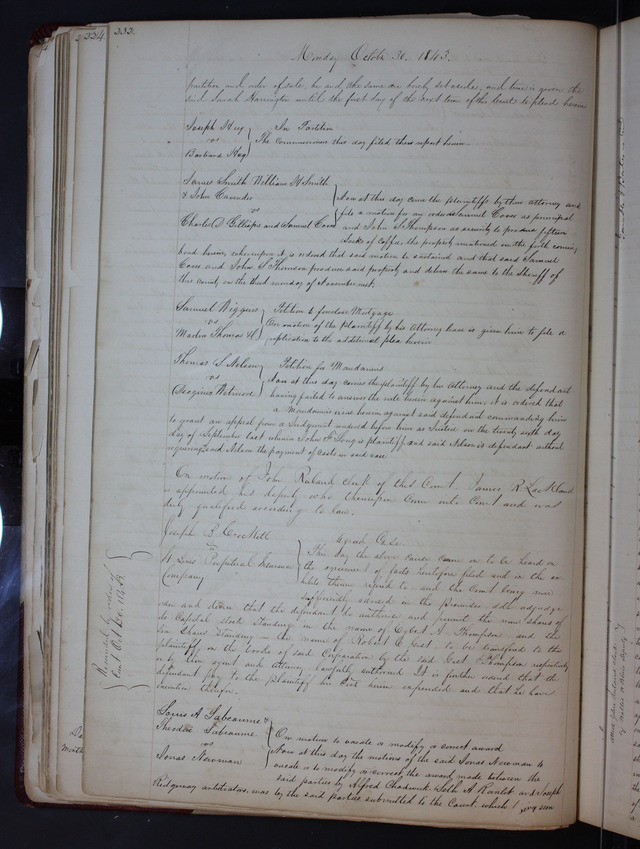 334
333.
Monday October 30. 1843.
partition and order of sale, be and the same are hereby set aside, and time is given the
said Sarah Harrington until the first day of the next term of this Court to plead herein
Joseph Hug } In Partition
vs } The Commissioners this day filed their report herein
Barbara Hug
James Smith William H Smith
& John Cavender } Now at this day come the plaintiffs by their Attorney and
vs file a motion for an order Samuel Coons as principal
Charles D Gillispie and Samuel Coons and John S Thompson as security to produce fifteen
Sacks of Coffee, the property mentioned in the forth coming
bond herein, whereupon it is ordered that said motion be sustained and that said Samuel
Coons and John S Thompson produce said property and deliver the same to the Sheriff of
this County on the third monday of November next.
Samuel Wiggins } Petition to foreclose Mortgage
vs } On motion of the plaintiff by his Attorney leave is given him to file a
Martin Thomas replication to the additional plea herein
Thomas S. Nelson } Petition for Mandamus
vs } Now at this day comes the plaintiff by his Attorney and the defendant
Seaginus Wetmore having failed to answer the rule herein against him, it is ordered that
a Mandamus issue herein against said defendant commanding him
to grant an appeal from a Judgment rendered before him as Justice on the twenty sixth day
day of September last wherein John F Long is plaintiff and said Nelson is defendant without
requiring said Nelson the payment of Costs in said case
On motion of John Ruland Clerk of this Court James R Lackland
is appointed his deputy who thereupon Came into Court and was
duly qualified according to law.
Joseph B Crockett } Agreed Case
vs } This day the above cause came on to be heard on
St Louis Perpetual Insurance the agreement of facts heretofore filed and on the
Company therein referred to and the Court being now
sufficiently advised in the Premises, doth adjudge
order and decree that the defendant do authorize and permit the nine shares of
its Capital stock standing in the name of A Thompson and the
Six Shares standing in the name of Robert C Gist, to be transfered to the
plaintiff, on the books of said Corporation by the said Gist & Thompson respectively
or by their agent and attorney lawfully authorized. It is further ordered that the
defendant pay to the plaintiff his Cost herein expended and that he have
execution therefor.
Recorded by order of
Court Oct
Louis A Labeaume &
Theodore Labeaume } On motion to vacate or modify or correct award
vs } Now at this day the motion of the said Jonas Newman to
Jonas Newman vacate or to modify or correct, the award made between the
said parties by Alfred Chadwick Seth A Ranlet and Joseph
Ridgeway arbitrators, was by the said parties submitted to the Court, which